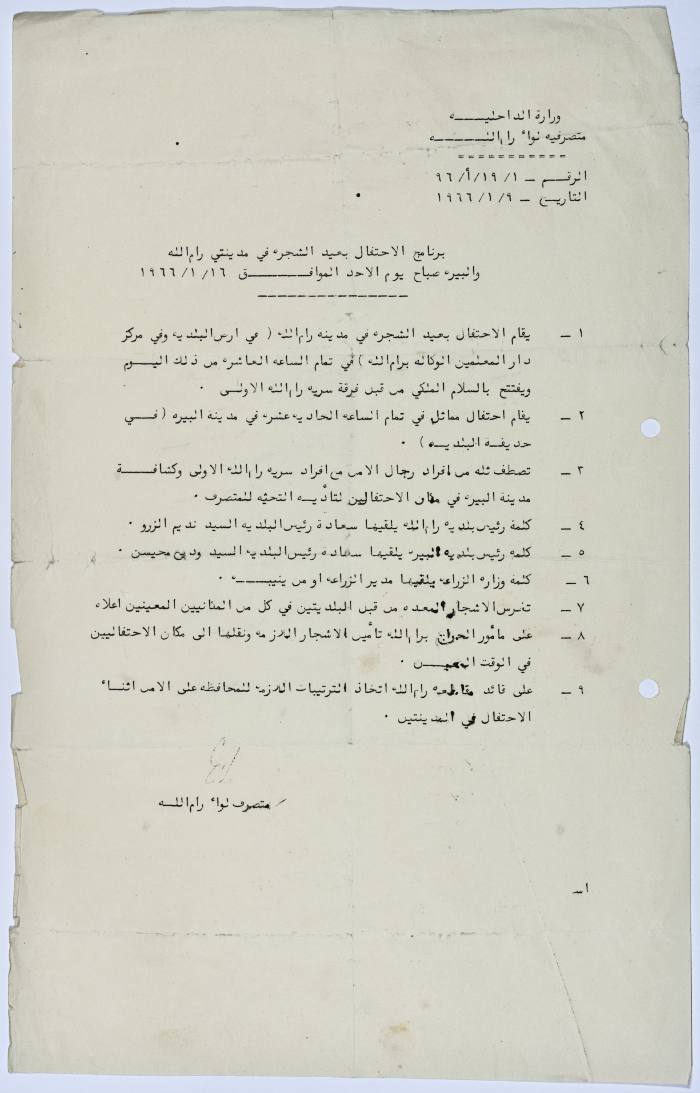 وزارة الداخليـــــه
متصرفيه لواء رام اللـــــــه
===========
الرقـــم ــ ١ / ١٩ / أ / ٩٦
التاريـــخ ــ ٩ / ١ / ١٩٦٦
برنامج الاحتفال بعيد الشجره في مدينتي رام الله
والبيره صباح يوم الاحد الموافـــــــــق ١٦ / ١ / ١٩٦٦
١ ــ يقام الاحتفال بعيد الشجره في مدينة رام الله ( في ارض البلديه وفي مركز
دار المعلمين الوكاله برام الله ) في تمام الساعه العاشره من ذلك اليـــوم
ويفتتح بالسلام الملكي من قبل فرقة سريه رام الله الاولـــى .
٢ ــ يقام احتفال مماثل في تمام الساعه الحاديه عشره في مدينة البيره ( فـــي
حديقـــة البلديـــه ) .
٣ ــ تصطف ثله من افراد رجال الامن من افراد سريه رام الله الاولى وكشافـــــة
مدينة البيره في مكان الاحتفالين لتأديـــة التحيه للمتصرف .
٤ ــ كلمة رئيس بلديه رام الله يلقيها سعادة رئيس البلديه السيد نديم الزرو .
٥ ــ كلمه رئيس بلدية البيره يلقيها سعاده رئيس البلديه السيد وديع محيسن .
٦ ــ كلمة وزارة الزراعه يلقيها مدير الزراعه او من ينيبـــــه .
٧ ــ تغرس الاشجار المعده من قبل البلديتين في كل من المكانيين المعينين اعلاه
٨ ــ على مأمور الحراج برام الله تأمين الاشجار اللازمه ونقلها الى مكان الاحتفاليين
في الوقت المعيـــن .
٩ ــ على قائد مقاطعه رام الله اتخاذ الترتيبات اللازمه للمحافظه على الامن اثنـــاء
الاحتفال في المدينتين .
متصرف لواء رام اللـــه
اس